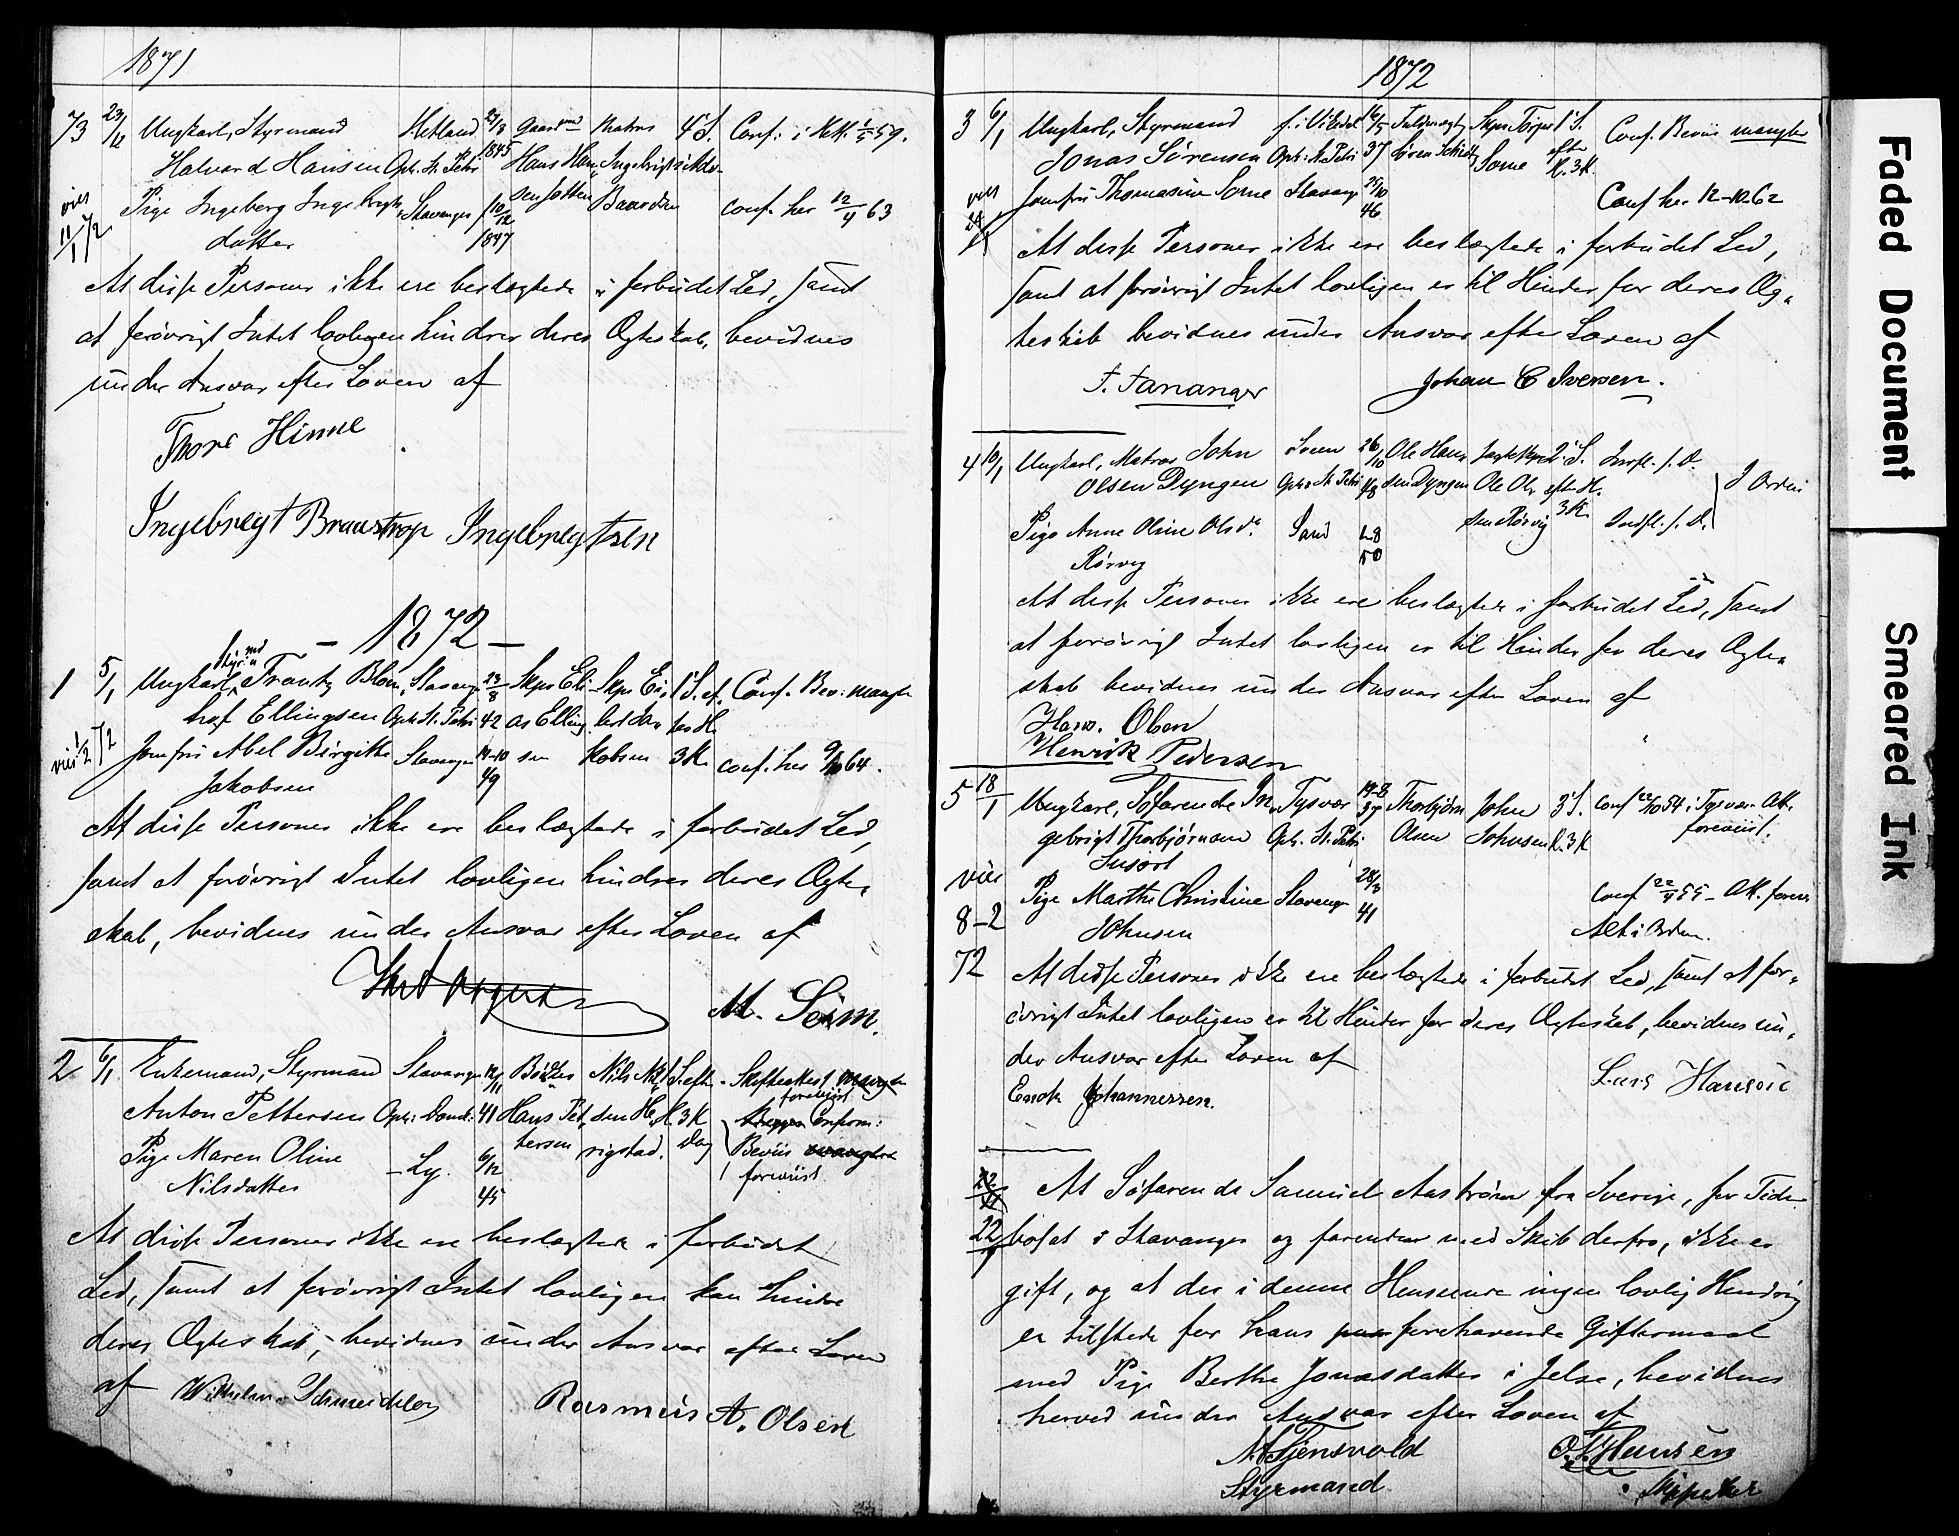 1871
73 23/12 Ungkarl, Styrmand Hetland 23/3 Gaardmd Matros 4 S. Conf: i Hetl. 59.
Halvard Hansen Oph. St. Petri 1845 Hans Han Ingebrigt
viet Pige Ingeborg Ingebregts Stavanger 10/12 sen Jotten Conf. her 12/4 63
11/1 72 datter 1847
At disse Personer ikke ere beslægtede i forbudet Led, samt
at forøvrigt Intet lovligen hindrer deres Ægteskab, bevidnes
under Ansvar efter Loven af
Thore Hinne
Ingebregt Braustrop Ingebregtsen
- 1872 -
Styrmd
1 5/1 Ungkarl, Frantz Blom, Stavang 23/8 Skps Eli Skps Ei 1 S. ef Conf. Bev: mangler
hof Ellingsen Oph. St. Petri 42 as Elling lert Ja ter H.
viet 1/2 72 Jomfru Abel Birgitte Stavanger 14-10 sen kobsen 3 K. conf. her 9/10 64.
Jakobsen 49
At disse Personer ikke ere beslægtede i forbudet Led,
samt at forøvrigt Intet lovligen hindrer deres Ægte
skab, bevidnes under Ansvar efter Loven af
M. Seim.
2 6/1 Enkemand, Styrmand Stavanger 12/11 Bødker Nils Nil S. efter Skifteattest mangler
forevist
Anton Pettersen Oph: Domk. 41 Hans Pet sen He H. 3 K Conform:
Pige Maren Oline - Ly. 6/12 tersen rigstad. Dag Beviis mangler
Nilsdatter 45 foreviist
At disse Personer ikke ere beslægtede i forbudet
Led, samt at forøvrigt Intet lovligen kan hindre
deres Ægteskab, bevidnes under Ansvar efter Loven
af Wilhelm Schneidler Rasmus A. Olsen
1872
3 6/1 Ungkarl, Styrmand 16/5 Fuldmægtig Skps Törges 1 S. Conf. Beviis mangler
Jonas Sørensen Oph: St. Petri 37 Søren Schiøtz Sørne efter H. 3 K.
viet Jomfru Thomasine Sørne Stavang 25/10 Conf her 12-10.62
46
At disse Personer ikke ere beslægtede i forbudet Led,
samt at forøvrigt Intet lovligen er til Hinder for deres Æg
teskab bevidnes under Ansvar efter Loven af
T. Tananger Johan C Iversen.
4 10/1 Ungkarl, Matros John 26/10 Ole Han Jagtskps 2 S. Indfl. f. D.
Olsen Dyngen Oph: St. Petri 48 sen Dyngen Ole Ol efter H. I Orden
Pige Anne Oline Olsdr Sand 2-8 sen Rørvig 3 K. Indfl. f. D.
Rørvig 50
At disse Personer ikke ere beslægtede i forbudet Led, samt
at forøvrigt Intet lovligen er til Hinder for deres Ægte
skab bevidnes under Ansvar efter Loven af
Hans. Olsen
Henrik Pedersen
5 18/1 Ungkarl, Søfarende In Tysvær 19-8 Thorbjørn John 3 S. Conf 22/10 54 i Tysvær. Att.
gebrigt Thorbjørnsen Oph. St. Petri 37 Olsen Johnsen K. 3 K foreviist.
viet Pige Marthe Christine Stavang 28/3 conf 22/4 55 - Att. forev
8-2 Johnsen 41 Alt i Orden.
72 At disse Personer ikke ere beslægtede i forbudet Led, samt at for
øvrigt Intet lovligen er til Hinder for deres Ægteskab, bevidnes un
der Ansvar efter Loven af
Enok Johannessen. Lars Hansen
22/1 At Søfarende Samuel Aastrøm fra Sverige, for Tiden
bosat i Stavanger og farende med Skib derfra, ikke er
gift, og at der i denne Henseende ingen lovlig Hindring
er tilstede for hans forehavende Giftermaal
med Pige Berthe Jonasdatter i Jelse, bevidnes
herved under Ansvar efter Loven af
M Stjensvold O. Hansen
Styrmand Skipper
Faded Document
Smeared Ink